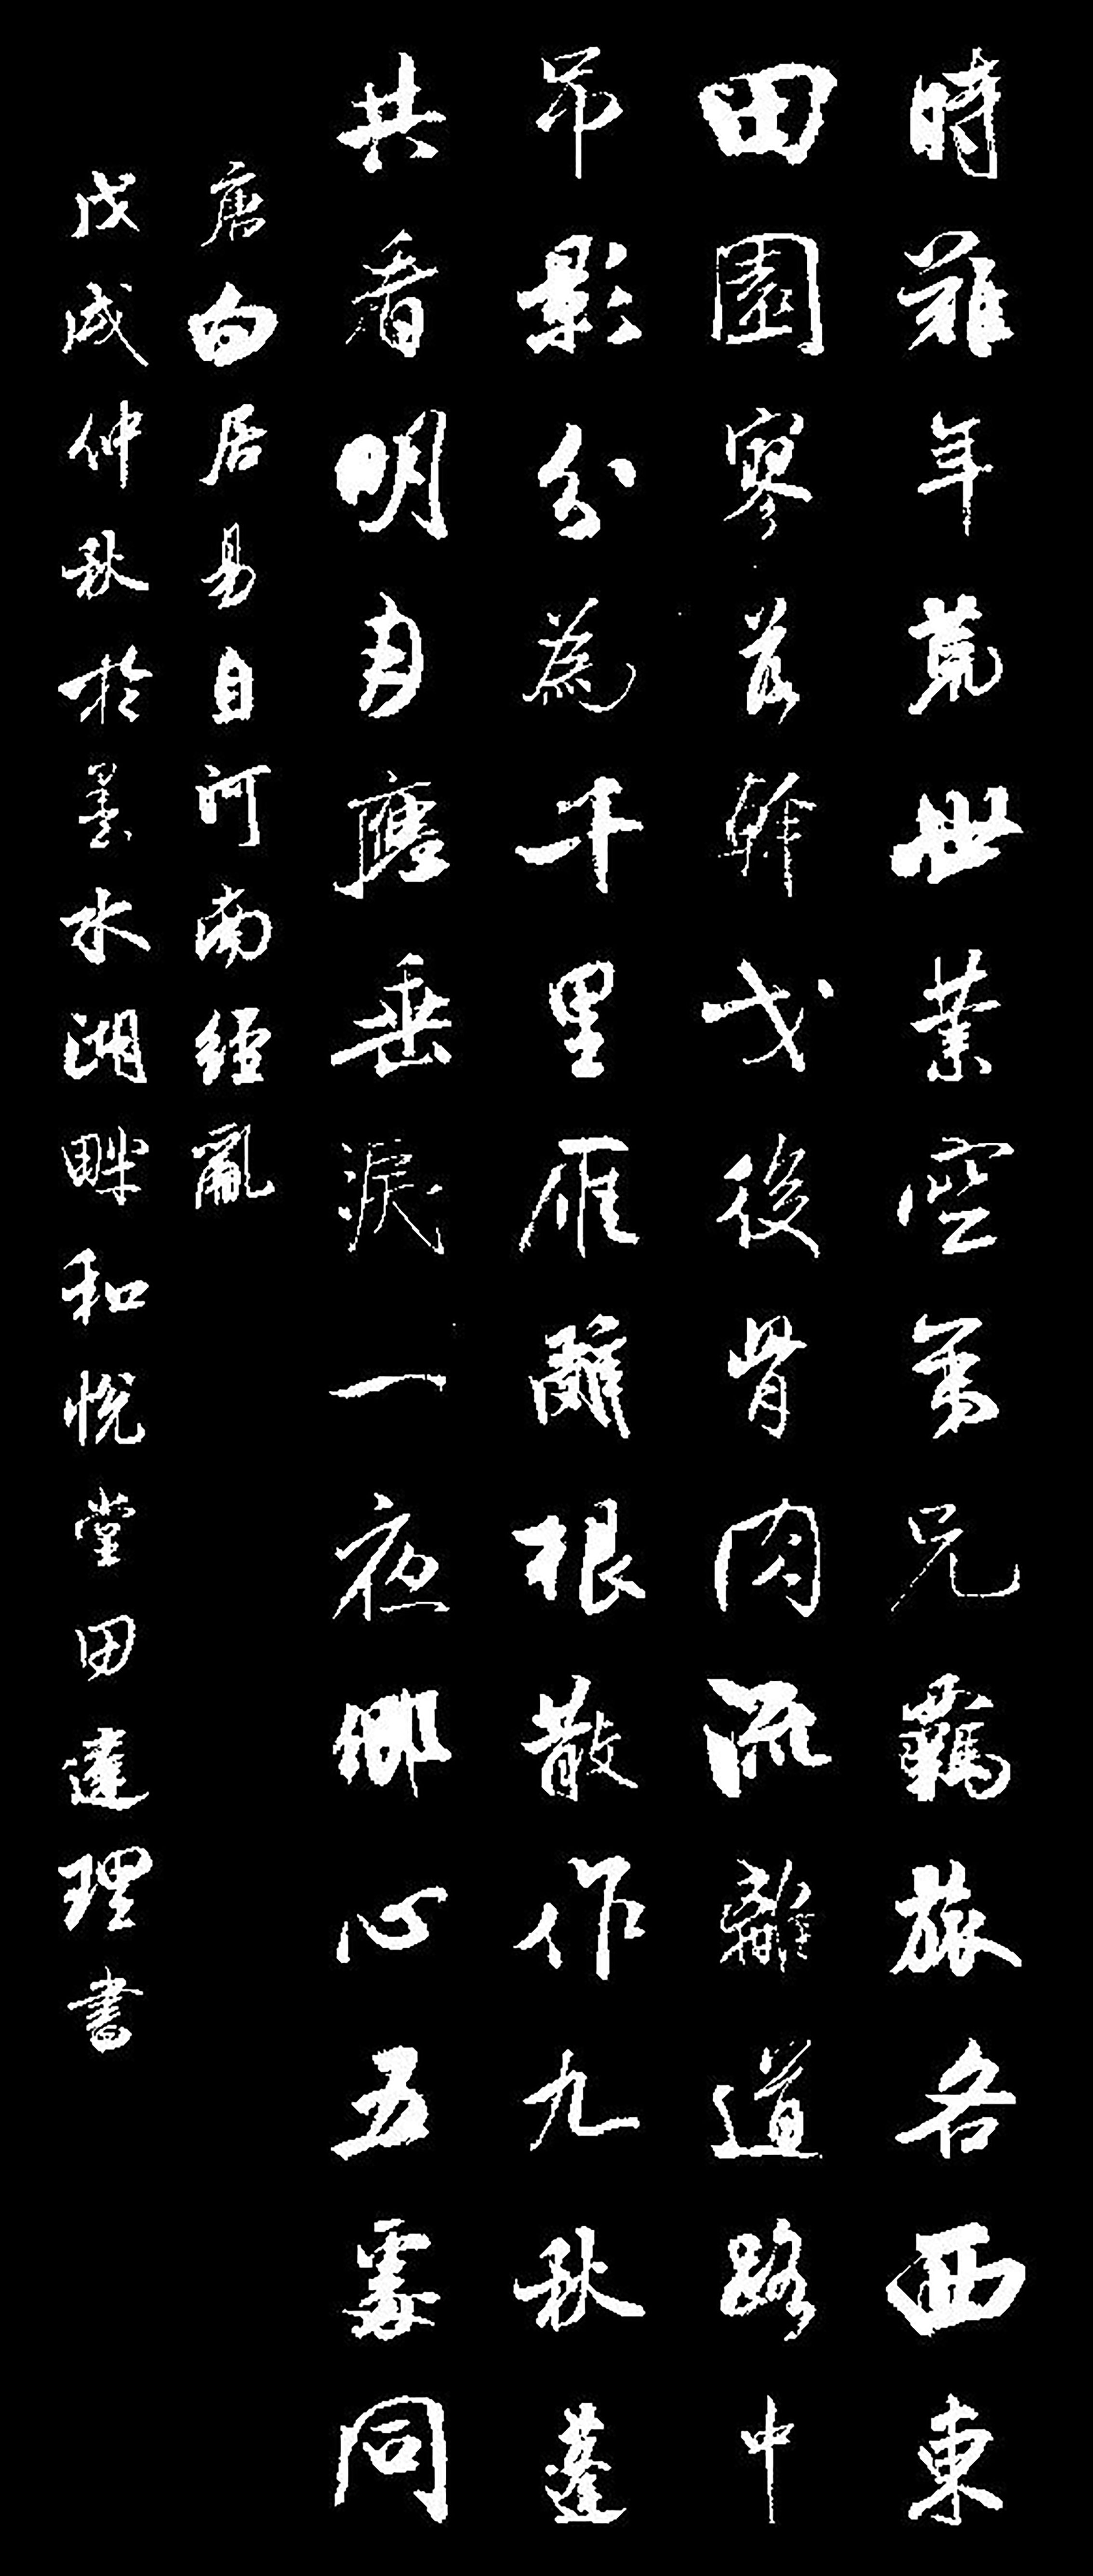 時難年荒世業空弟兄羈旅各西東
田園寥落幹戈後骨肉流離道路中
吊影分為千里雁辭根散作九秋蓬
共看明月應垂淚一夜鄉心五處同
唐白居易自河南經亂
戊戌仲秋於墨水湖畔和悅堂田達理書